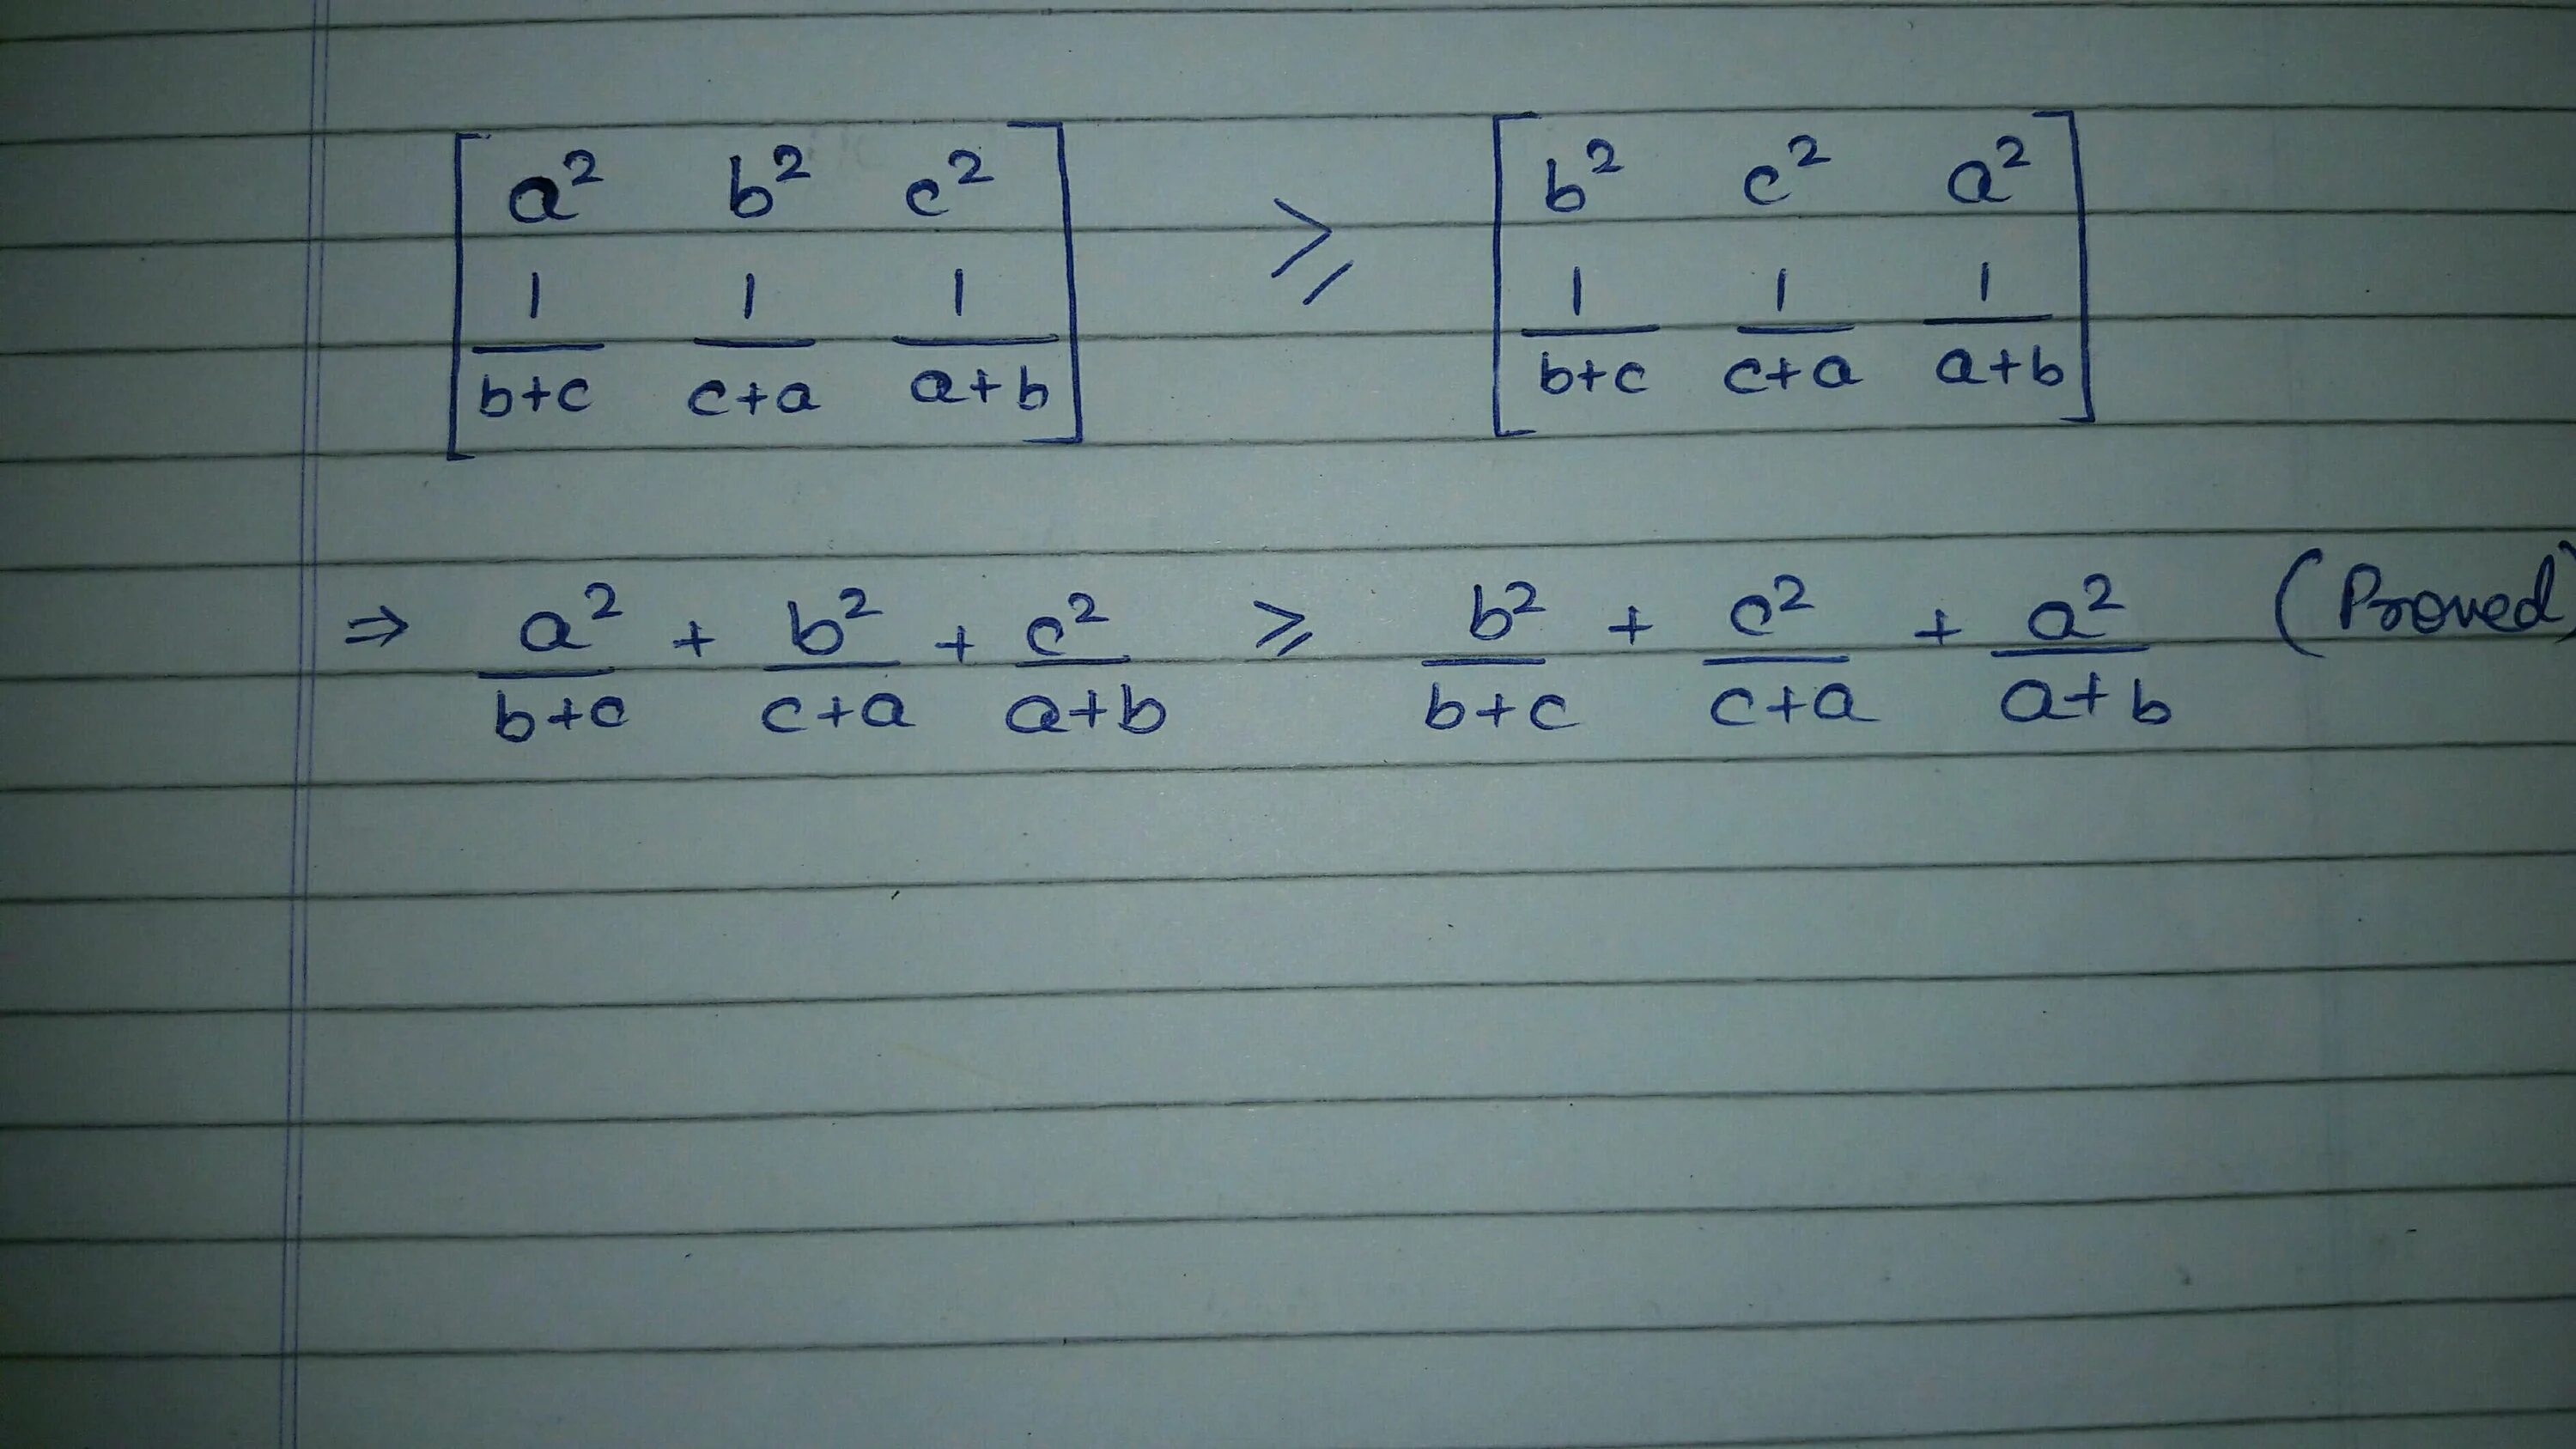 [a² b² c² ; 1/(b+c) 1/(c+a) 1/(a+b)] ⩾ [b² c² a² ; 1/(b+c) 1/(c+a) 1/(a+b)]
⇒ a²/(b+c) + b²/(c+a) + c²/(a+b) ⩾ b²/(b+c) + c²/(c+a) + a²/(a+b) (Proved)